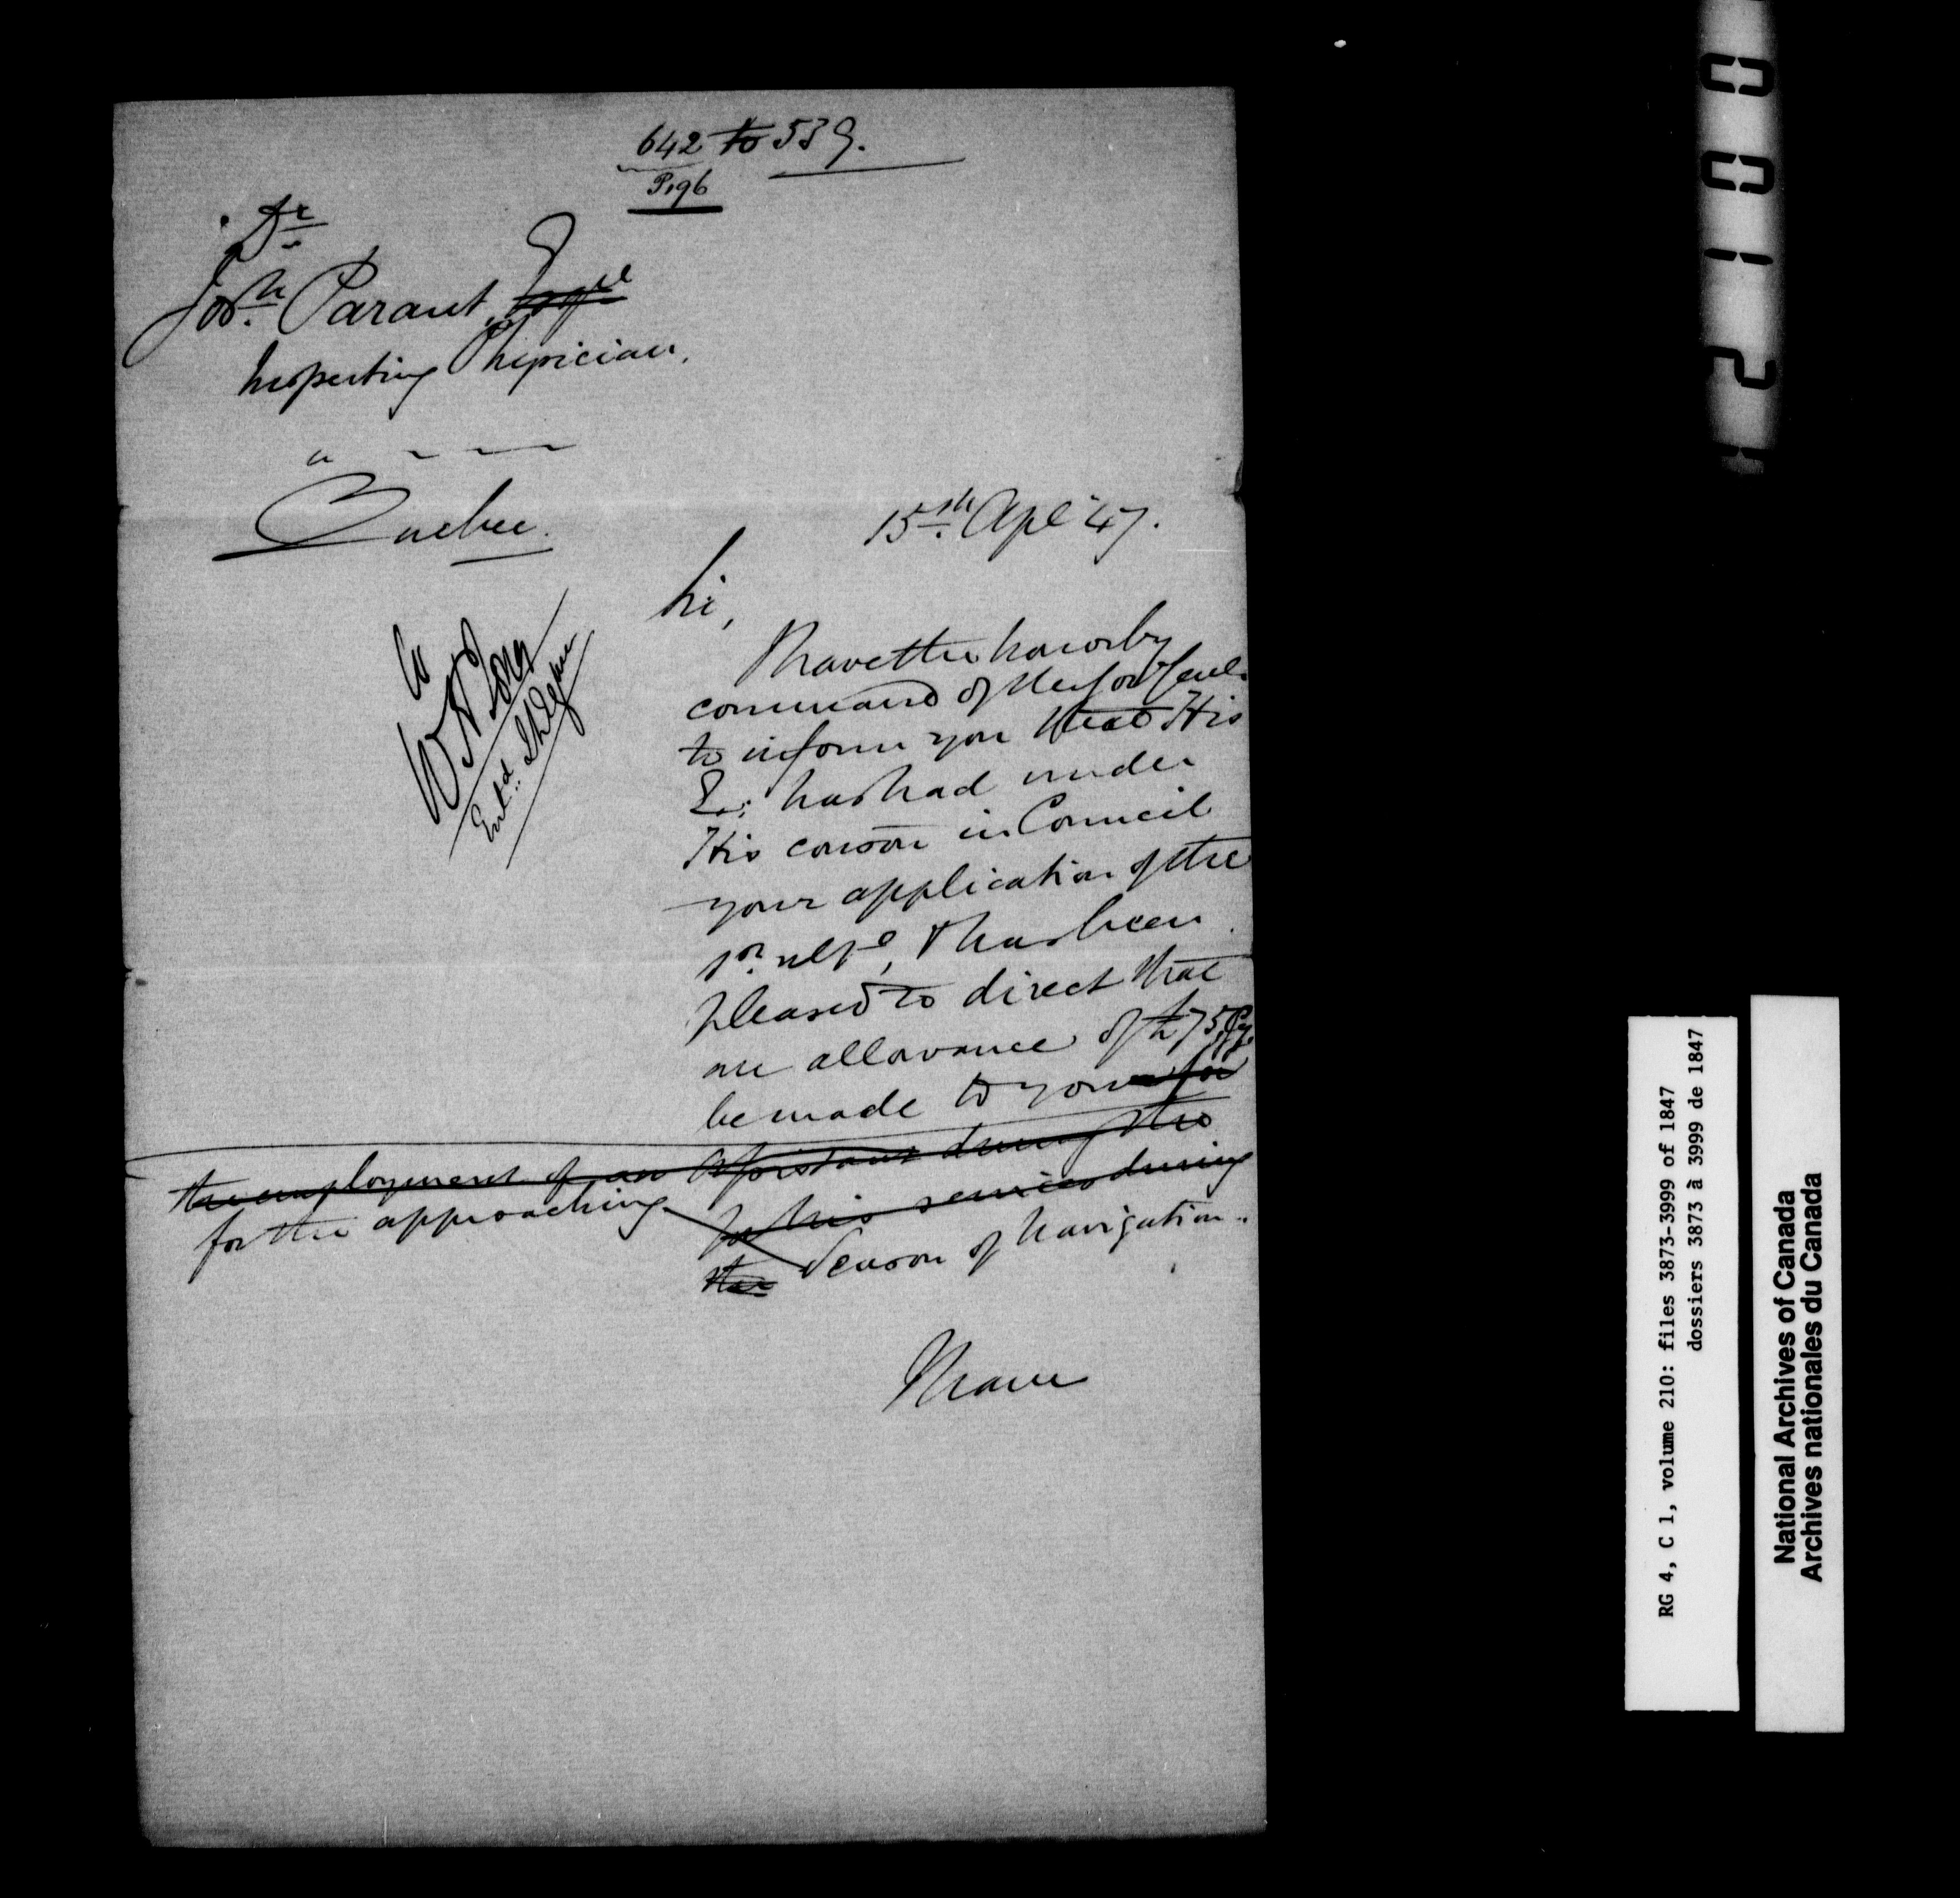 642 to 539.
P196
Dr
Josh. Parant, Esqre
Inspecting Physician,
Quebec.
15th. Apl '47.
Sir,
I have the honor by
command of the Govr Genl.
to inform you that His
Ex: has had under
His conson in Council
your application of the
1st. ulto, & has been
pleased to direct that
an allowance of £75 Cy.
be made to you for
the employment of an Assistant during the
for his services during
for the approaching
the Season of Navigation.
I have
Entd.
0012
RG 4, C 1, volume 210: files 3873-3999 of 1847
dossiers 3873 à 3999 de 1847
National Archives of Canada
Archives nationales du Canada